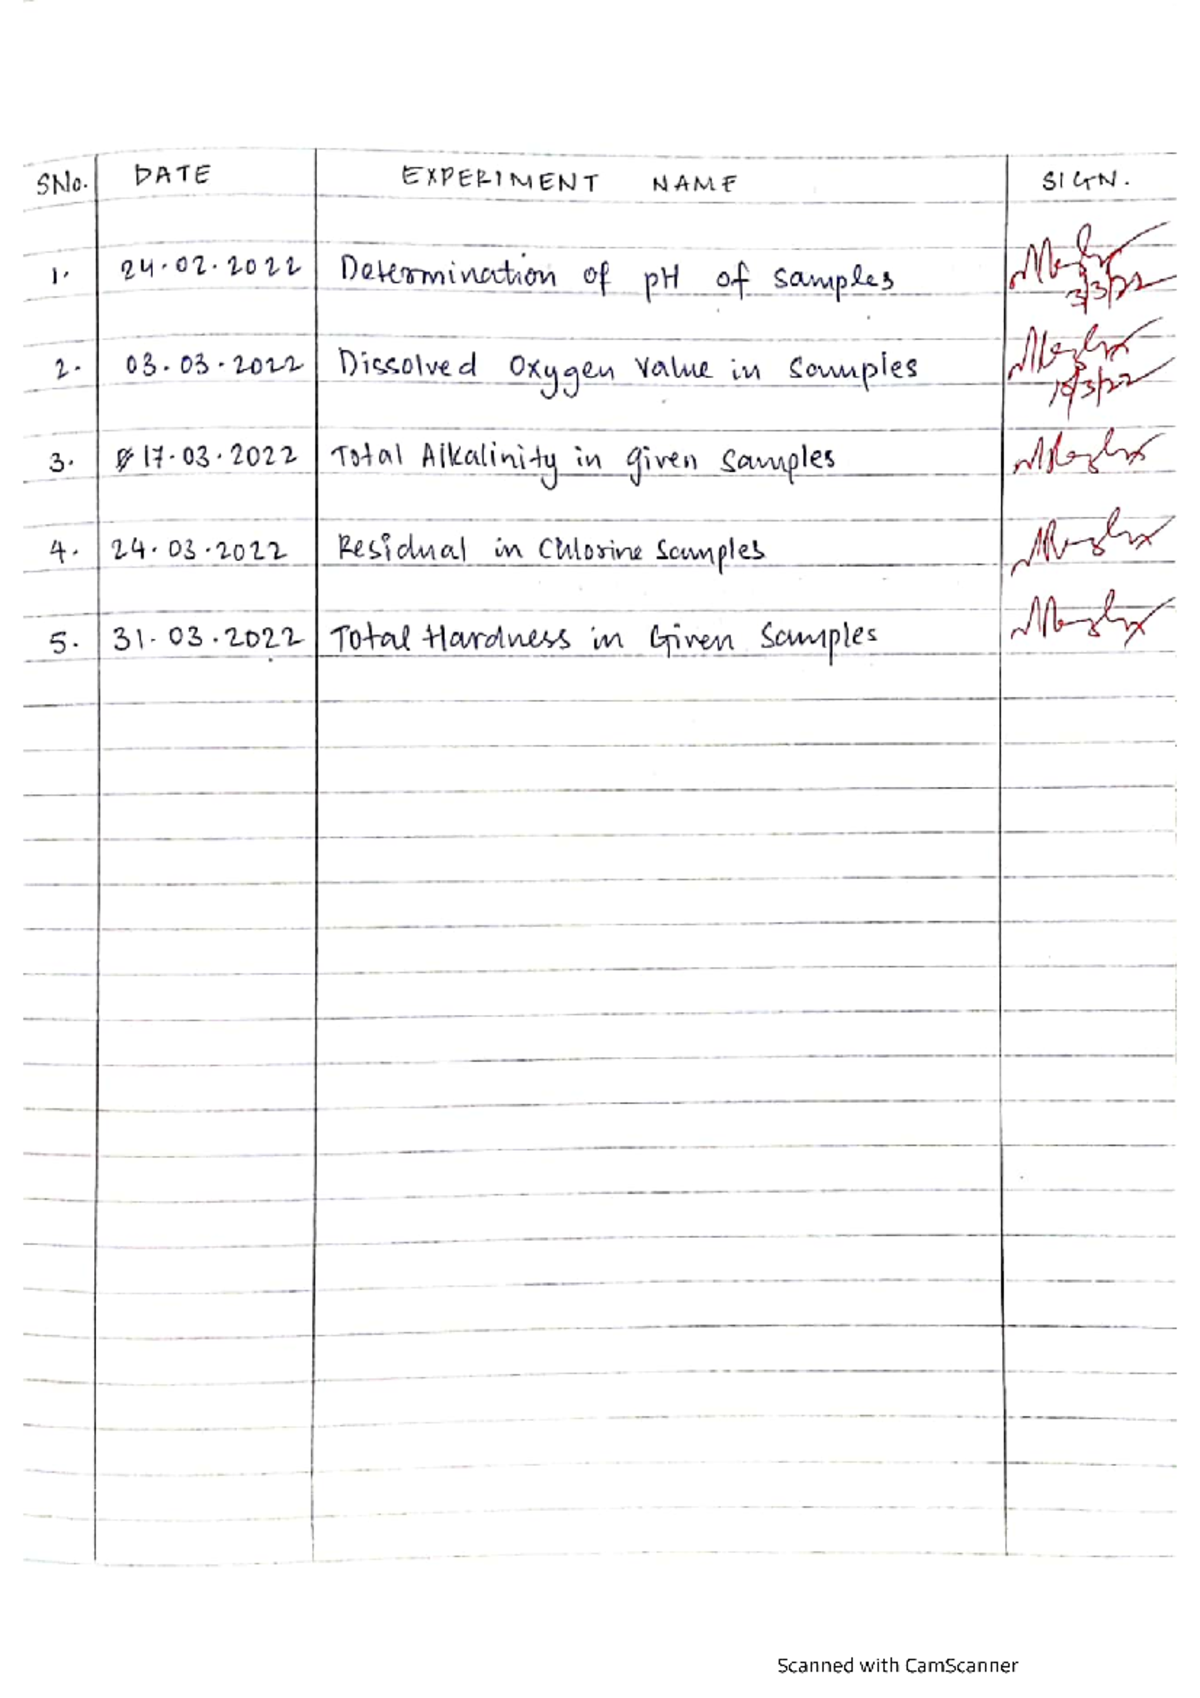 SNo. DATE EXPERIMENT NAME SIGN.
1. 24.02.2022 Determination of pH of samples
3/3/22
2. 03.03.2022 Dissolved Oxygen Value in Samples
3. 17.03.2022 Total Alkalinity in given samples
4. 24.03.2022 Residual in Chlorine Samples
5. 31.03.2022 Total Hardness in Given Samples
Scanned with CamScanner